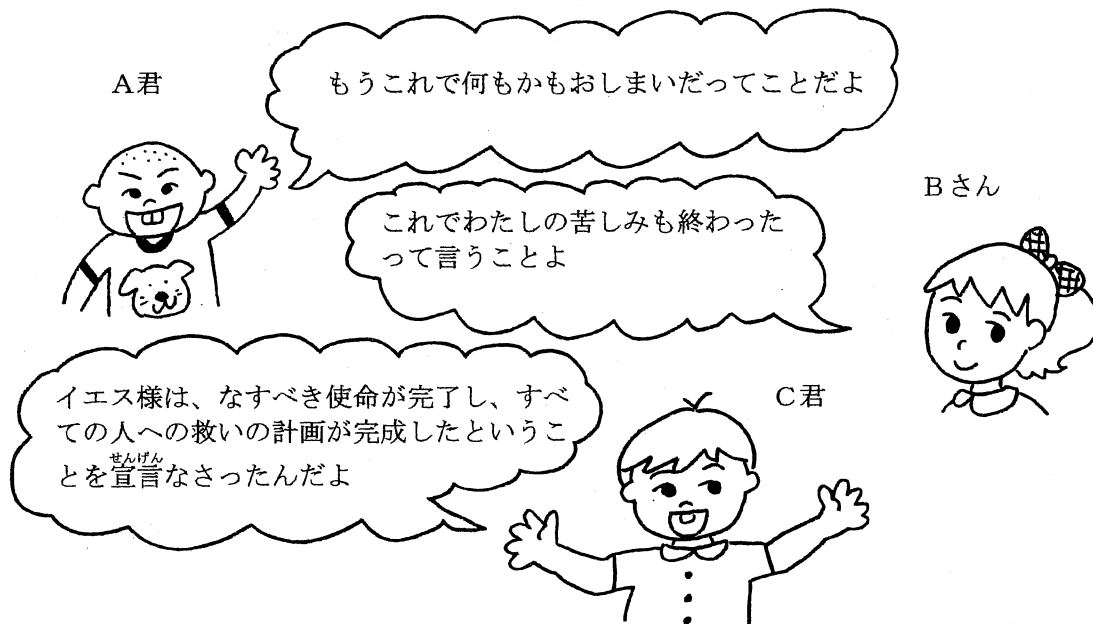 A君
もうこれで何もかもおしまいだってことだよ
Bさん
これでわたしの苦しみも終わった
って言うことよ
イエス様は、なすべき使命が完了し、すべ
ての人への救いの計画が完成したというこ
せんげん
とを宣言なさったんだよ
C君